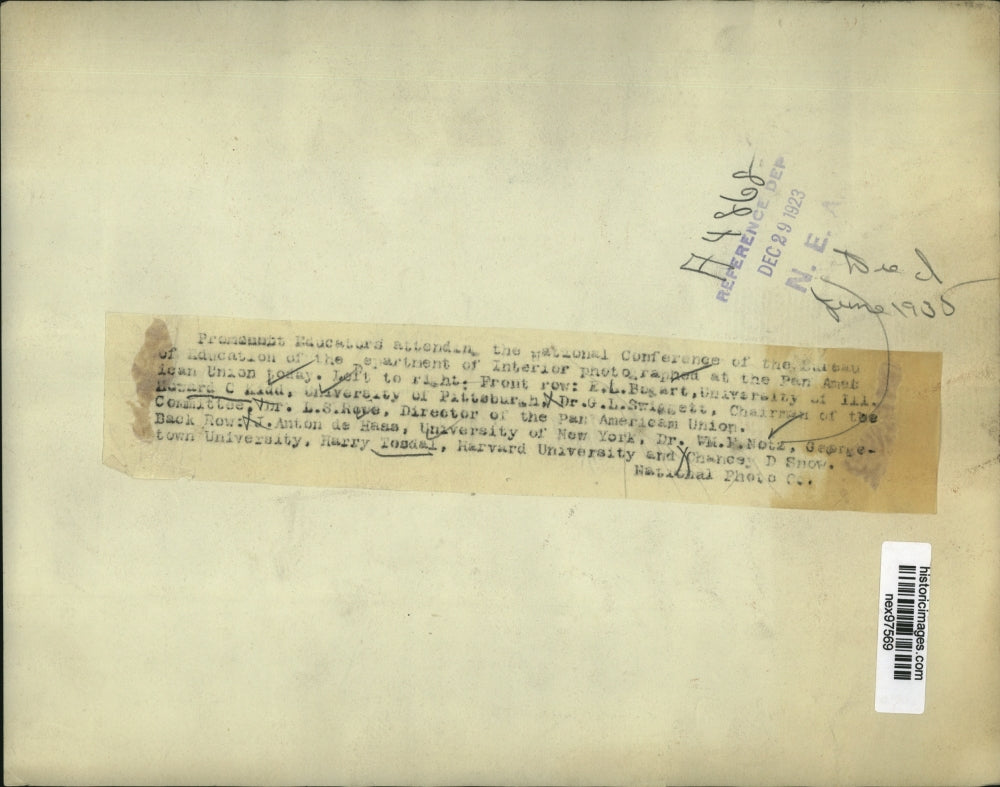 A 4868
REFERENCE DEP
DEC 29 1923
N. E. A.
Died
June 1935
Promdmnt Educators attending the National Conference of the Bureau
of Education of the Department of Interior photographed at the Pan Amer
ican Union today. Left to right: Front row: E.L.Bogart, University of Ill.
Howard C Kidd, University of Pittsburgh, Dr.G.L.Swiggett, Chairman of the
Committee, Dr. L.S.Rowe, Director of the Pan American Union.
Back Row: J.Anton de Haas, University of New York, Dr. Wm.F.Notz, George-
town University, Harry Tosdal, Harvard University and Chancey D Snow.
National Photo Co.
historicimages.com
nex97569